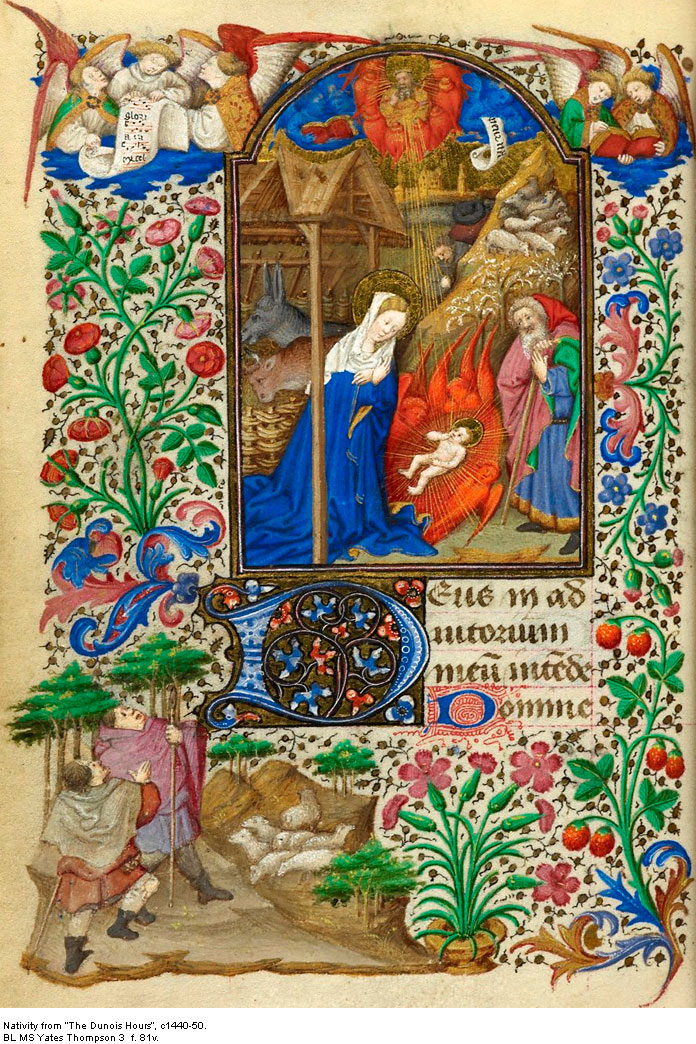 glori
a in
excel
Deus in ad
iutorium
meū intēde
Domine
Nativity from "The Dunois Hours", c1440-50.
BL MS Yates Thompson 3 f. 81v.